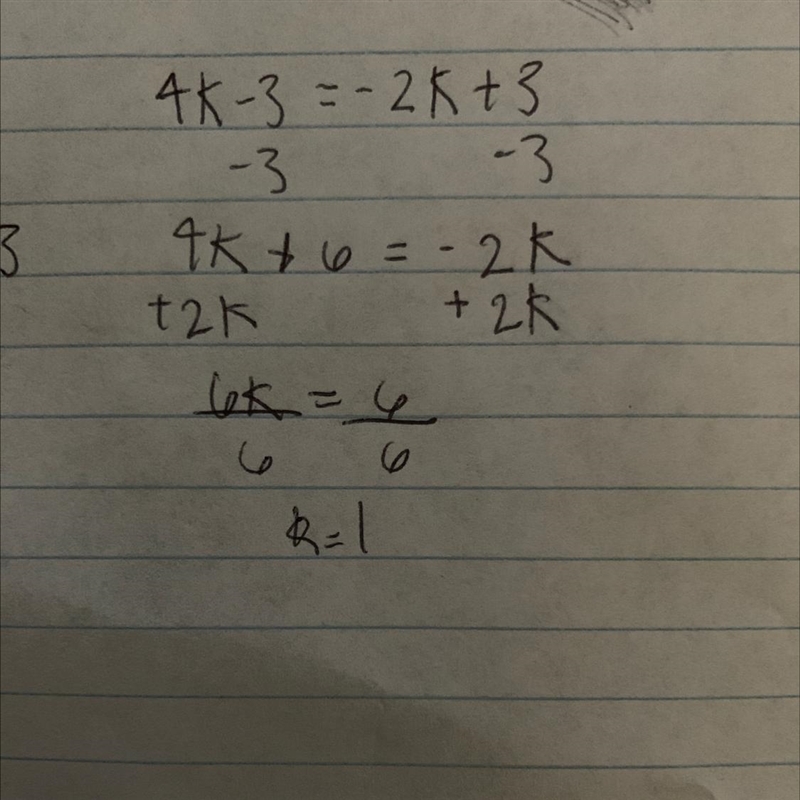 4k-3 = -2k+3
-3 -3
3 4k + 6 = -2k
+2k +2k
6k = 6
6 6
k=1